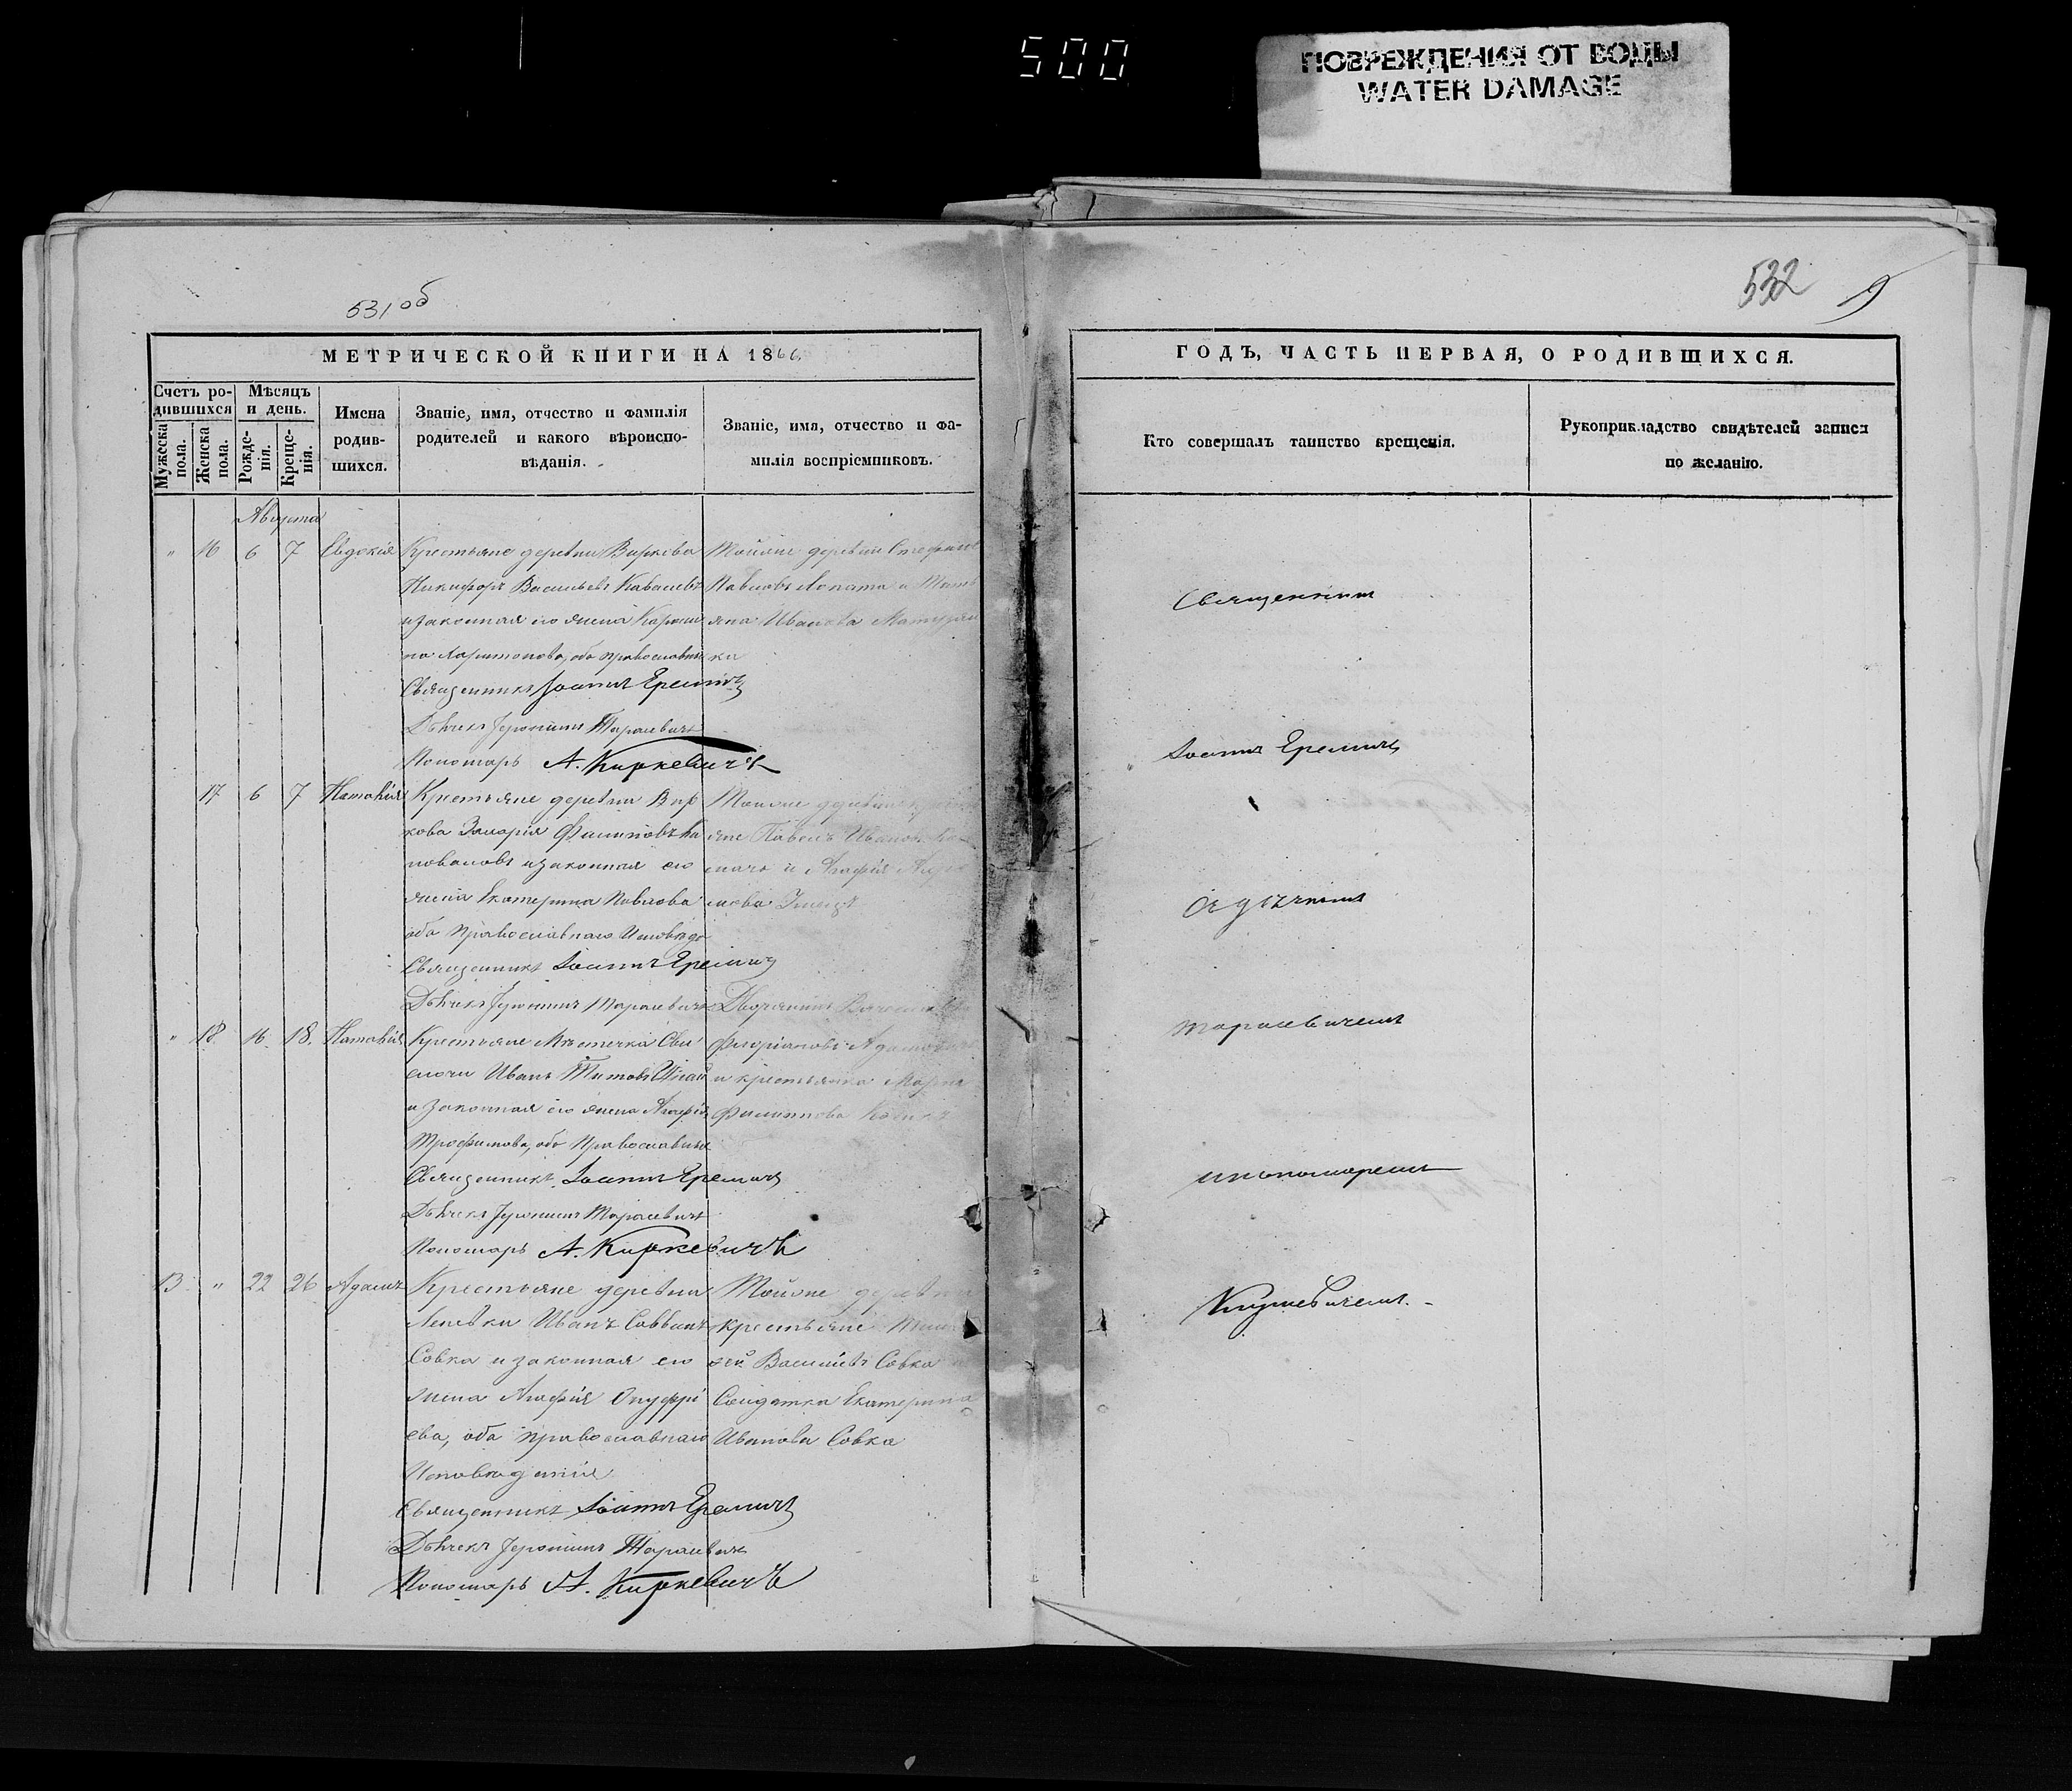 500
ПОВРЕЖДЕНИЯ ОТ ВОДЫ
WATER DAMAGE
531об
532 9
МЕТРИЧЕСКОЙ КНИГИ НА 1866.
ГОДЪ, ЧАСТЬ ПЕРВАЯ, О РОДИВШИХСЯ.
Счетъ ро-
дившихся
Мужеска
пола.
Женска
пола.
Мѣсяцъ
и день.
Рожде-
нія.
Креще-
нія.
Имена
родив-
шихся.
Званіе, имя, отчество и фамилія
родителей и какого вѣроиспо-
вѣданія.
Званіе, имя, отчество и фа-
милія воспріемниковъ.
Кто совершалъ таинство крещенія.
Рукоприкладство свидѣтелей записи
по желанію.
Августа
" 16 6 7 Евдокія
Крестьяне деревни Виркова
Никифоръ Васильевъ Кавалевъ
и законная его жена
Харитонова, оба православные
Священникъ Іоаннъ Еремичъ
Дьячекъ Іеронимъ Тарасевичъ
Пономарь А. Киркевичъ
Тойже деревни Стефанъ
Павловъ Лопата и
Иванова
ка
17 6 7 Наталія
Крестьяне деревни Вир
кова Захарія Филиповъ
и законная его
жена Екатерина Павлова
оба Православнаго Исповѣда
Священникъ Іоаннъ Еремичъ
Дьячекъ Іеронимъ Тарасевичъ
Тойже деревни
яне Павелъ Иванов
и Агафія
" 18 16 18. Наталія
Крестьяне Мѣстечка Сви
слочи Иванъ Титовъ
и законная его жена Агафія
Трофимова, оба Православные
Священникъ Іоаннъ Еремичъ
Дьячекъ Іеронимъ Тарасевичъ
Пономарь А. Киркевичъ
Дворянинъ
Флоріановъ
и крестьянка Марія
Филиппова
13 " 22 26 Адамъ
Крестьяне деревни
Иванъ Саввинъ
Совка и законная его
жена Агафія Онуфрі
ева, оба православнаго
Исповѣданія
Священникъ Іоаннъ Еремичъ
Дьячекъ Іеронимъ Тарасевичъ
Пономарь А. Киркевичъ
Тойже деревни
крестьяне
ѳей Василіевъ Совка
Солдатка Екатерина
Иванова Совка
Священникъ
Іоаннъ Еремичъ
съ дьячкомъ
Тарасевичемъ
и пономаремъ
Киркевичемъ.